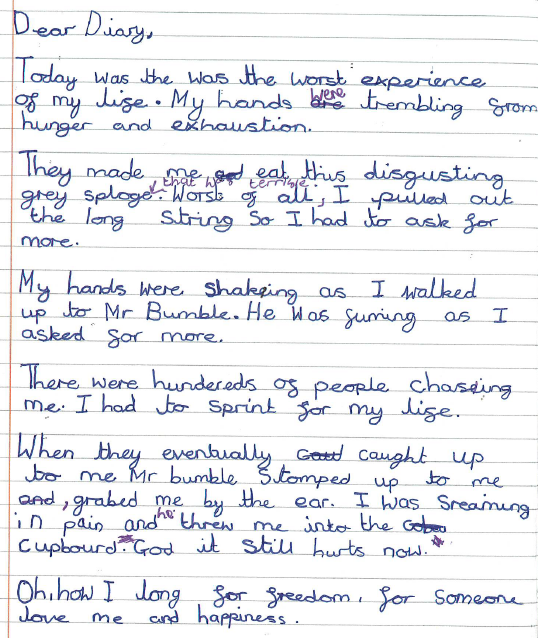 Dear Diary,
Today was the was the worst experience
of my life. My hands were trembling from
hunger and exhaustion.
They made me eat this disgusting
grey sploge that was terrible. Worst of all, I pulled out
the long string so I had to ask for
more.
My hands were shakeing as I walked
up to Mr Bumble. He was fuming as I
asked for more.
There were hundereds of people chaseing
me. I had to sprint for my life.
When they eventually caught up
to me Mr bumble stomped up to me
, grabed me by the ear. I was sreaming
in pain and he threw me into the
cupbourd.* God it still hurts now.*
Oh, how I long for freedom, for someone
love me and happiness.